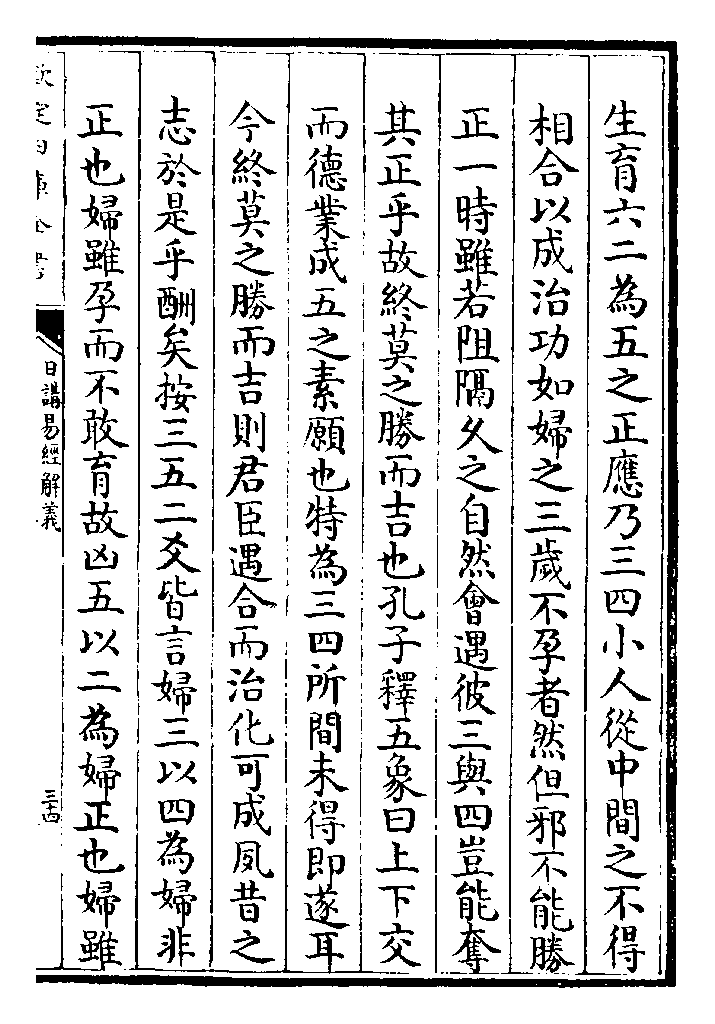 生育六二為五之正應乃三四小人從中間之不得
相合以成治功如婦之三歲不孕者然但邪不能勝
正一時雖若阻隔久之自然會遇彼三與四豈能奪
其正乎故終莫之勝而吉也孔子釋五象曰上下交
而德業成五之素願也特為三四所間未得即遂耳
今終莫之勝而吉則君臣遇合而治化可成夙昔之
志於是乎酬矣按三五二爻皆言婦三以四為婦非
正也婦雖孕而不敢育故凶五以二為婦正也婦雖
欽定四庫全書
日講易經解義
三十四